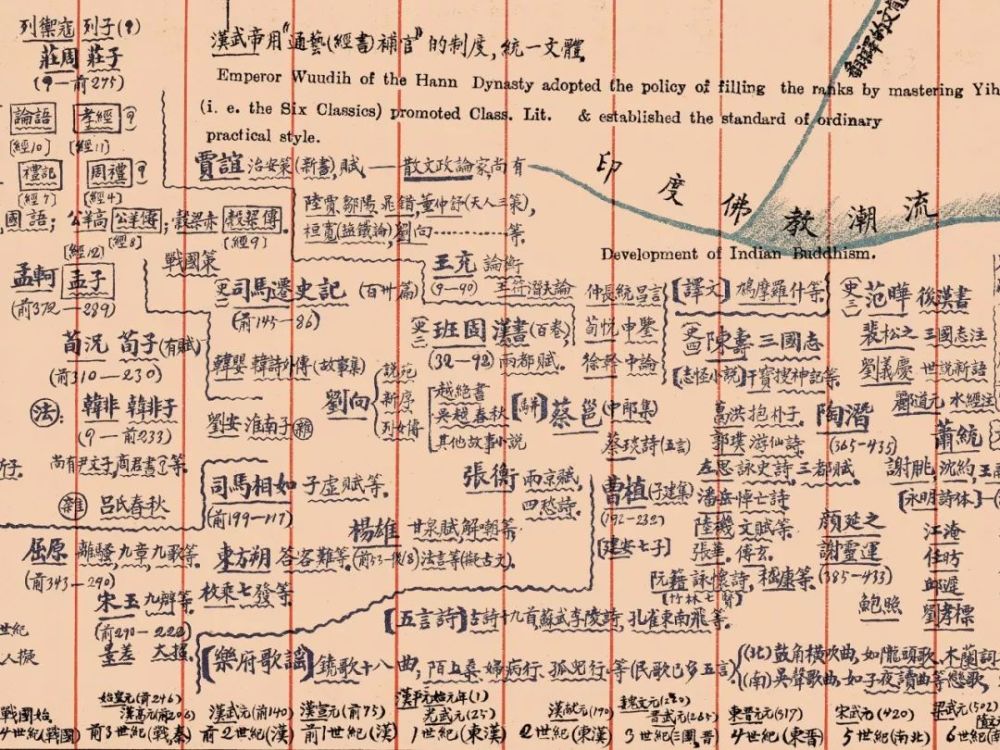 列禦寇 列子(?)
莊周 莊子
(?—前275)
漢武帝用"通藝(經書)補官"的制度,統一文體.
Emperor Wuudih of the Hann Dynasty adopted the policy of filling the ranks by mastering Yih
(i. e. the Six Classics) promoted Class. Lit. & established the standard of ordinary
practical style.
論語 孝經 ?
[經10] [經11]
禮記 周禮 ?
[經7] [經4]
賈誼 治安策(新書),賦——散文政論家,尚有
陸賈,鄒陽,晁錯,董仲舒(天人三策),
桓寬(鹽鐵論),劉向…………等.
印度佛教潮流
Development of Indian Buddhism.
國語; 公羊高 公羊傳; 穀梁赤 穀梁傳.
[經8] [經9]
[經12]
孟軻 孟子
(前372—289)
戰國策
司馬遷 史記 (百卅篇)
(前145—86)
王充 論衡
(?—90) 王符 潛夫論
仲長統 昌言
[譯文] 鳩摩羅什等
范曄 後漢書
荀況 荀子(有賦)
(前310—230)
班固 漢書(百卷)
(32—92) 兩都賦.
荀悅 申鑒
徐幹 中論
陳壽 三國志
[志怪小說]干寶搜神記等.
裴松之 三國志注
劉義慶 世說新語
酈道元 水經注
韓嬰 韓詩外傳(故事集)
劉向 說苑
新序
列女傳
越絕書
吳越春秋
其他故事小說
法: 韓非 韓非子
(?—前233)
劉安 淮南子 雜
蔡邕(中郎集)
蔡琰詩(五言)
葛洪 抱朴子.
郭璞 游仙詩.
左思 詠史詩.三都賦.
陶潛
(365—435)
蕭統
尚有尹文子,商君書?等.
雜 呂氏春秋
司馬相如 子虛賦等.
(前199—117)
張衡 兩京賦,
四愁詩.
曹植(子建集)
(192—232)
[建安七子]
潘岳 悼亡詩
陸機 文賦等
張華.傅玄.
阮籍 詠懷詩, 嵇康等.
[竹林七賢]
謝朓,沈約,王
[永明詩体]
顏延之
謝靈運
(385—433)
鮑照
江淹
任昉
邱遲
劉孝標
屈原 離騷,九章,九歌等.
(前343—290)
楊雄 甘泉賦解嘲等,
法言等(擬古文).
東方朔 答客難等.
枚乘 七發等.
宋玉 九辯等.
(前290—222)
景差 大招.
[五言詩]古詩十九首,蘇武李陵詩,孔雀東南飛等.
[樂府歌謠]鐃歌十八曲,陌上桑.婦病行.孤兒行.等(民歌已多五言)
(北)鼓角橫吹曲,如隴頭歌.木蘭詞
(南)吳聲歌曲,如子夜讀曲等戀歌,
始皇元(前246)
漢高元(前206)
漢武元(前140)
漢宣元(前75)
漢平元始元年(1)
光武元(25)
漢獻元(190)
晉武元(265)
東晉元元(317)
宋武元(420)
梁武元(502)
戰國始.
4世紀(戰國)
前3世紀(戰,秦)
前2世紀(漢)
前1世紀(漢)
1世紀(東漢)
2世紀(東漢)
3世紀(三國,晉)
4世紀(東晉)
5世紀(南北)
6世紀(南